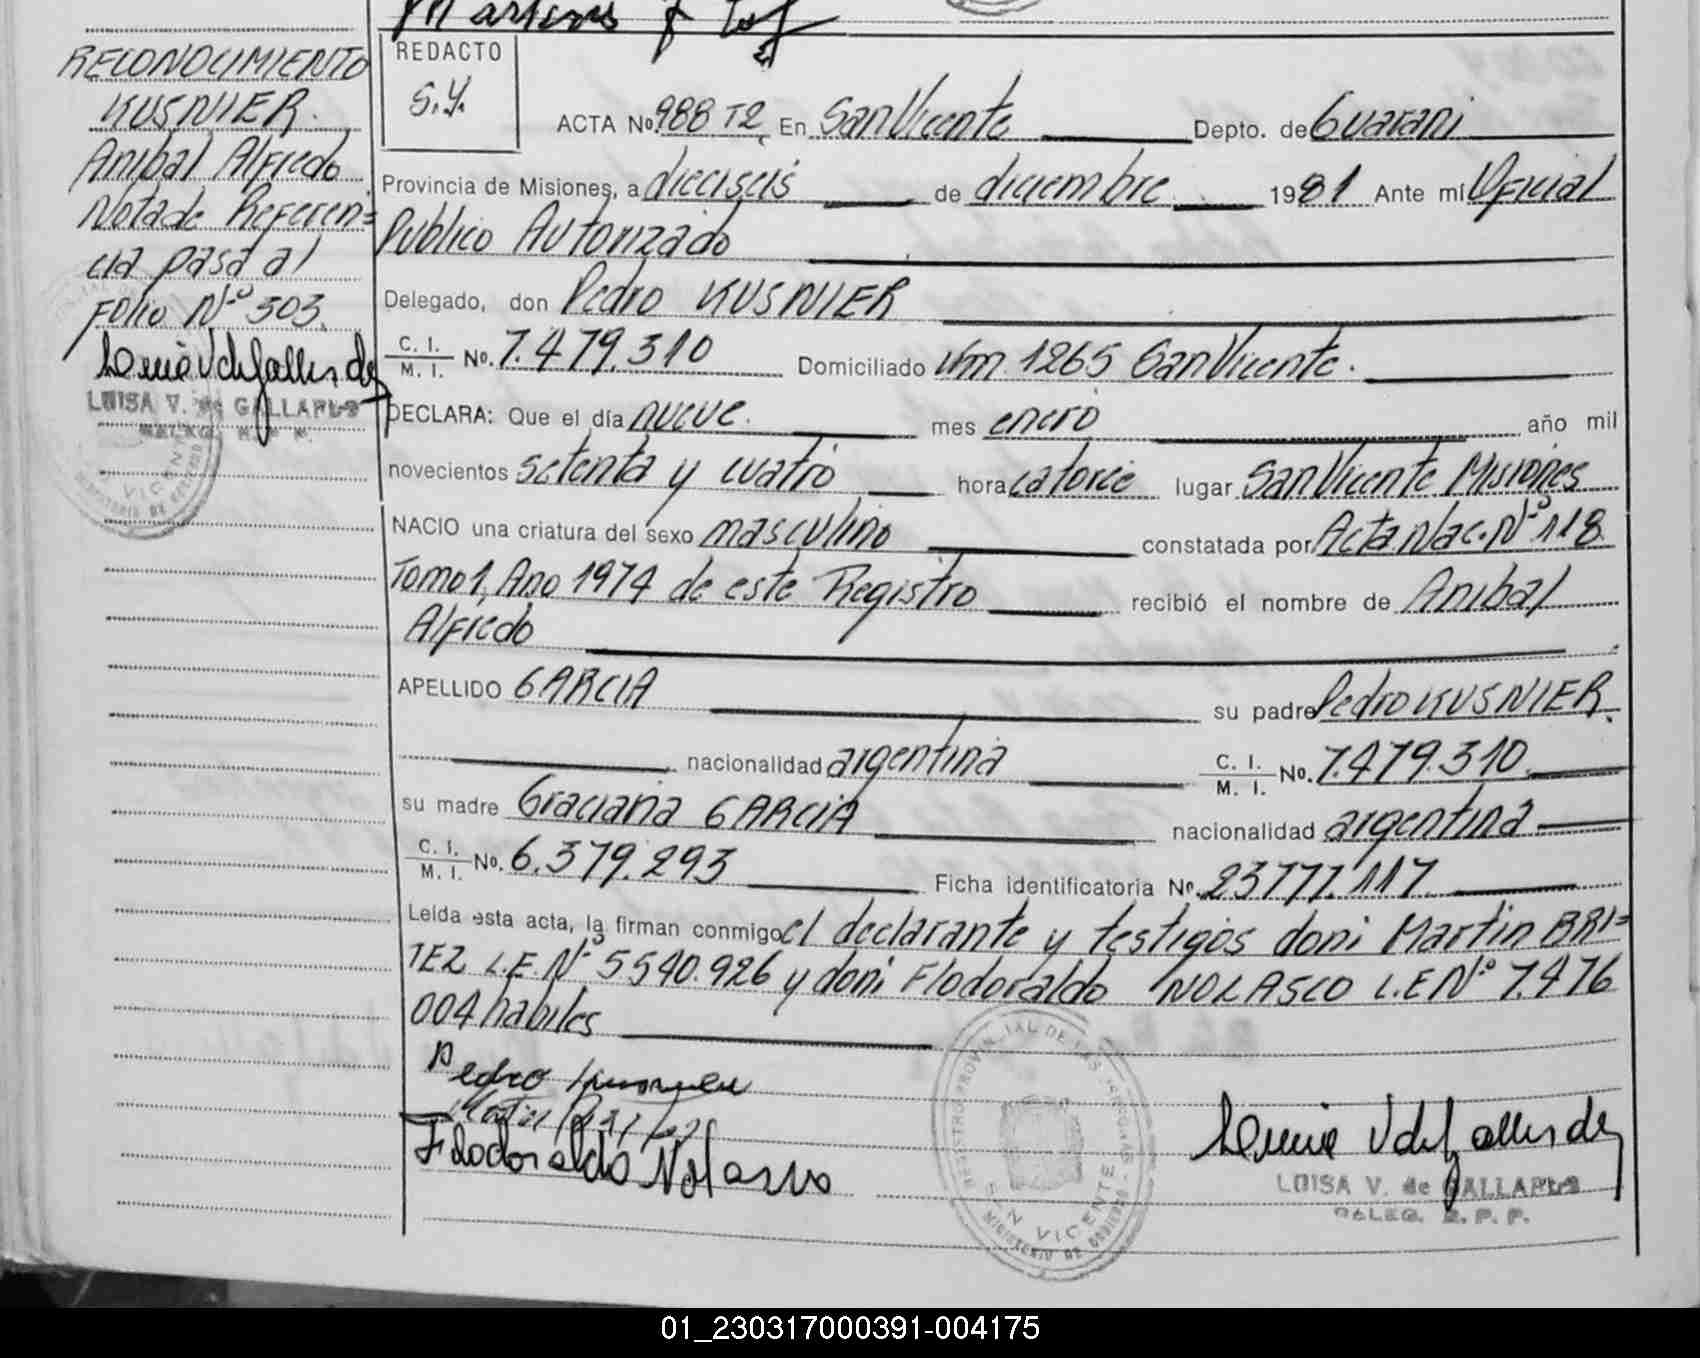 RECONOCIMIENTO
KUSNIER.
Anibal Alfredo
Nota de Referen=
cia pasa al
Folio Nº 303.
LUISA V. de GALLARDO
DELEG. R. P. P.
REDACTO
S.Y.
ACTA No. 988 T2 En San Vicente Depto. de Guarani
Provincia de Misiones, a dieciseis de diciembre 1981 Ante mí Oficial
Publico Autorizado
Delegado, don Pedro KUSNIER
C. I. / M. I. No. 7.479.310 Domiciliado Km 1265 San Vicente.
DECLARA: Que el día nueve. mes enero año mil
novecientos setenta y cuatro hora catorce lugar San Vicente Misiones
NACIO una criatura del sexo masculino constatada por Acta Nac. Nº 118
Tomo 1, Año 1974 de este Registro recibió el nombre de Anibal
Alfredo
APELLIDO GARCIA su padre Pedro KUSNIER.
nacionalidad argentina C. I. / M. I. No. 7.479.310
su madre Graciana GARCIA nacionalidad argentina
C. I. / M. I. No. 6.379.293 Ficha identificatoria No. 23777.117
Leída esta acta, la firman conmigo el declarante y testigos don: Martin BRI=
TEZ L.E. Nº 5.540.926 y don: Flodoraldo NOLASCO L.E Nº 7.476
004 habiles
Pedro
Flodoraldo Nolasco
REGISTRO PROVINCIAL DE LAS PERSONAS
SAN VICENTE
MINISTERIO DE GOBIERNO
LUISA V. de GALLARDO
DELEG. R. P. P.
01_230317000391-004175